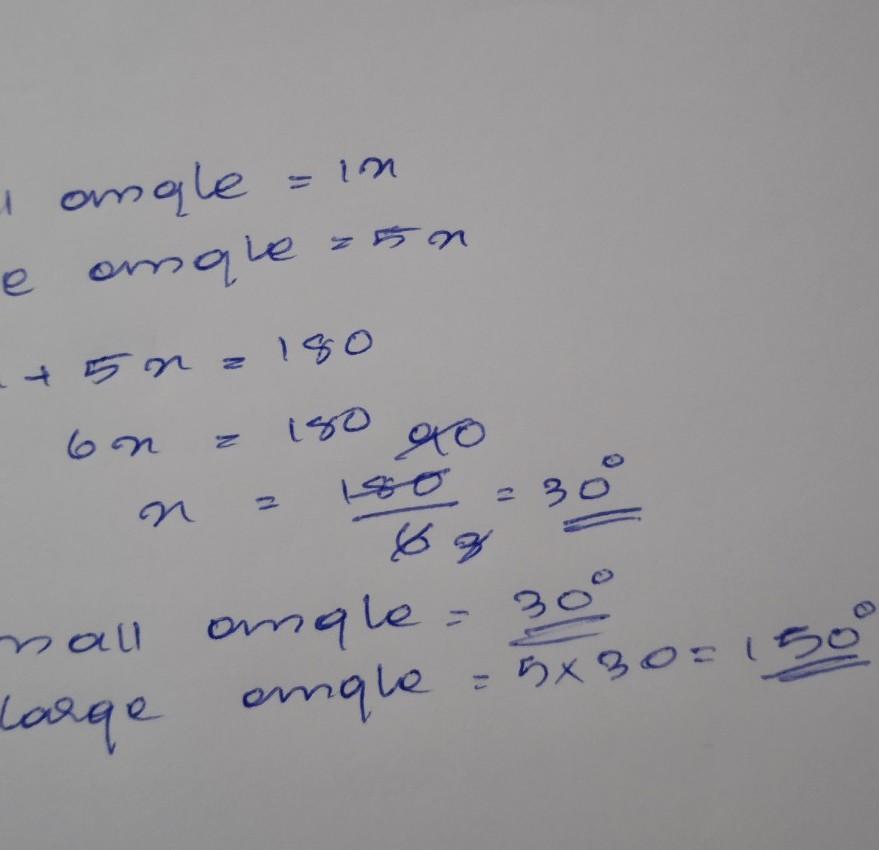 angle = 1x
e angle = 5x
+ 5x = 180
6x = 180
x = 180/6 = 30°
mall angle = 30°
large angle = 5x30 = 150°